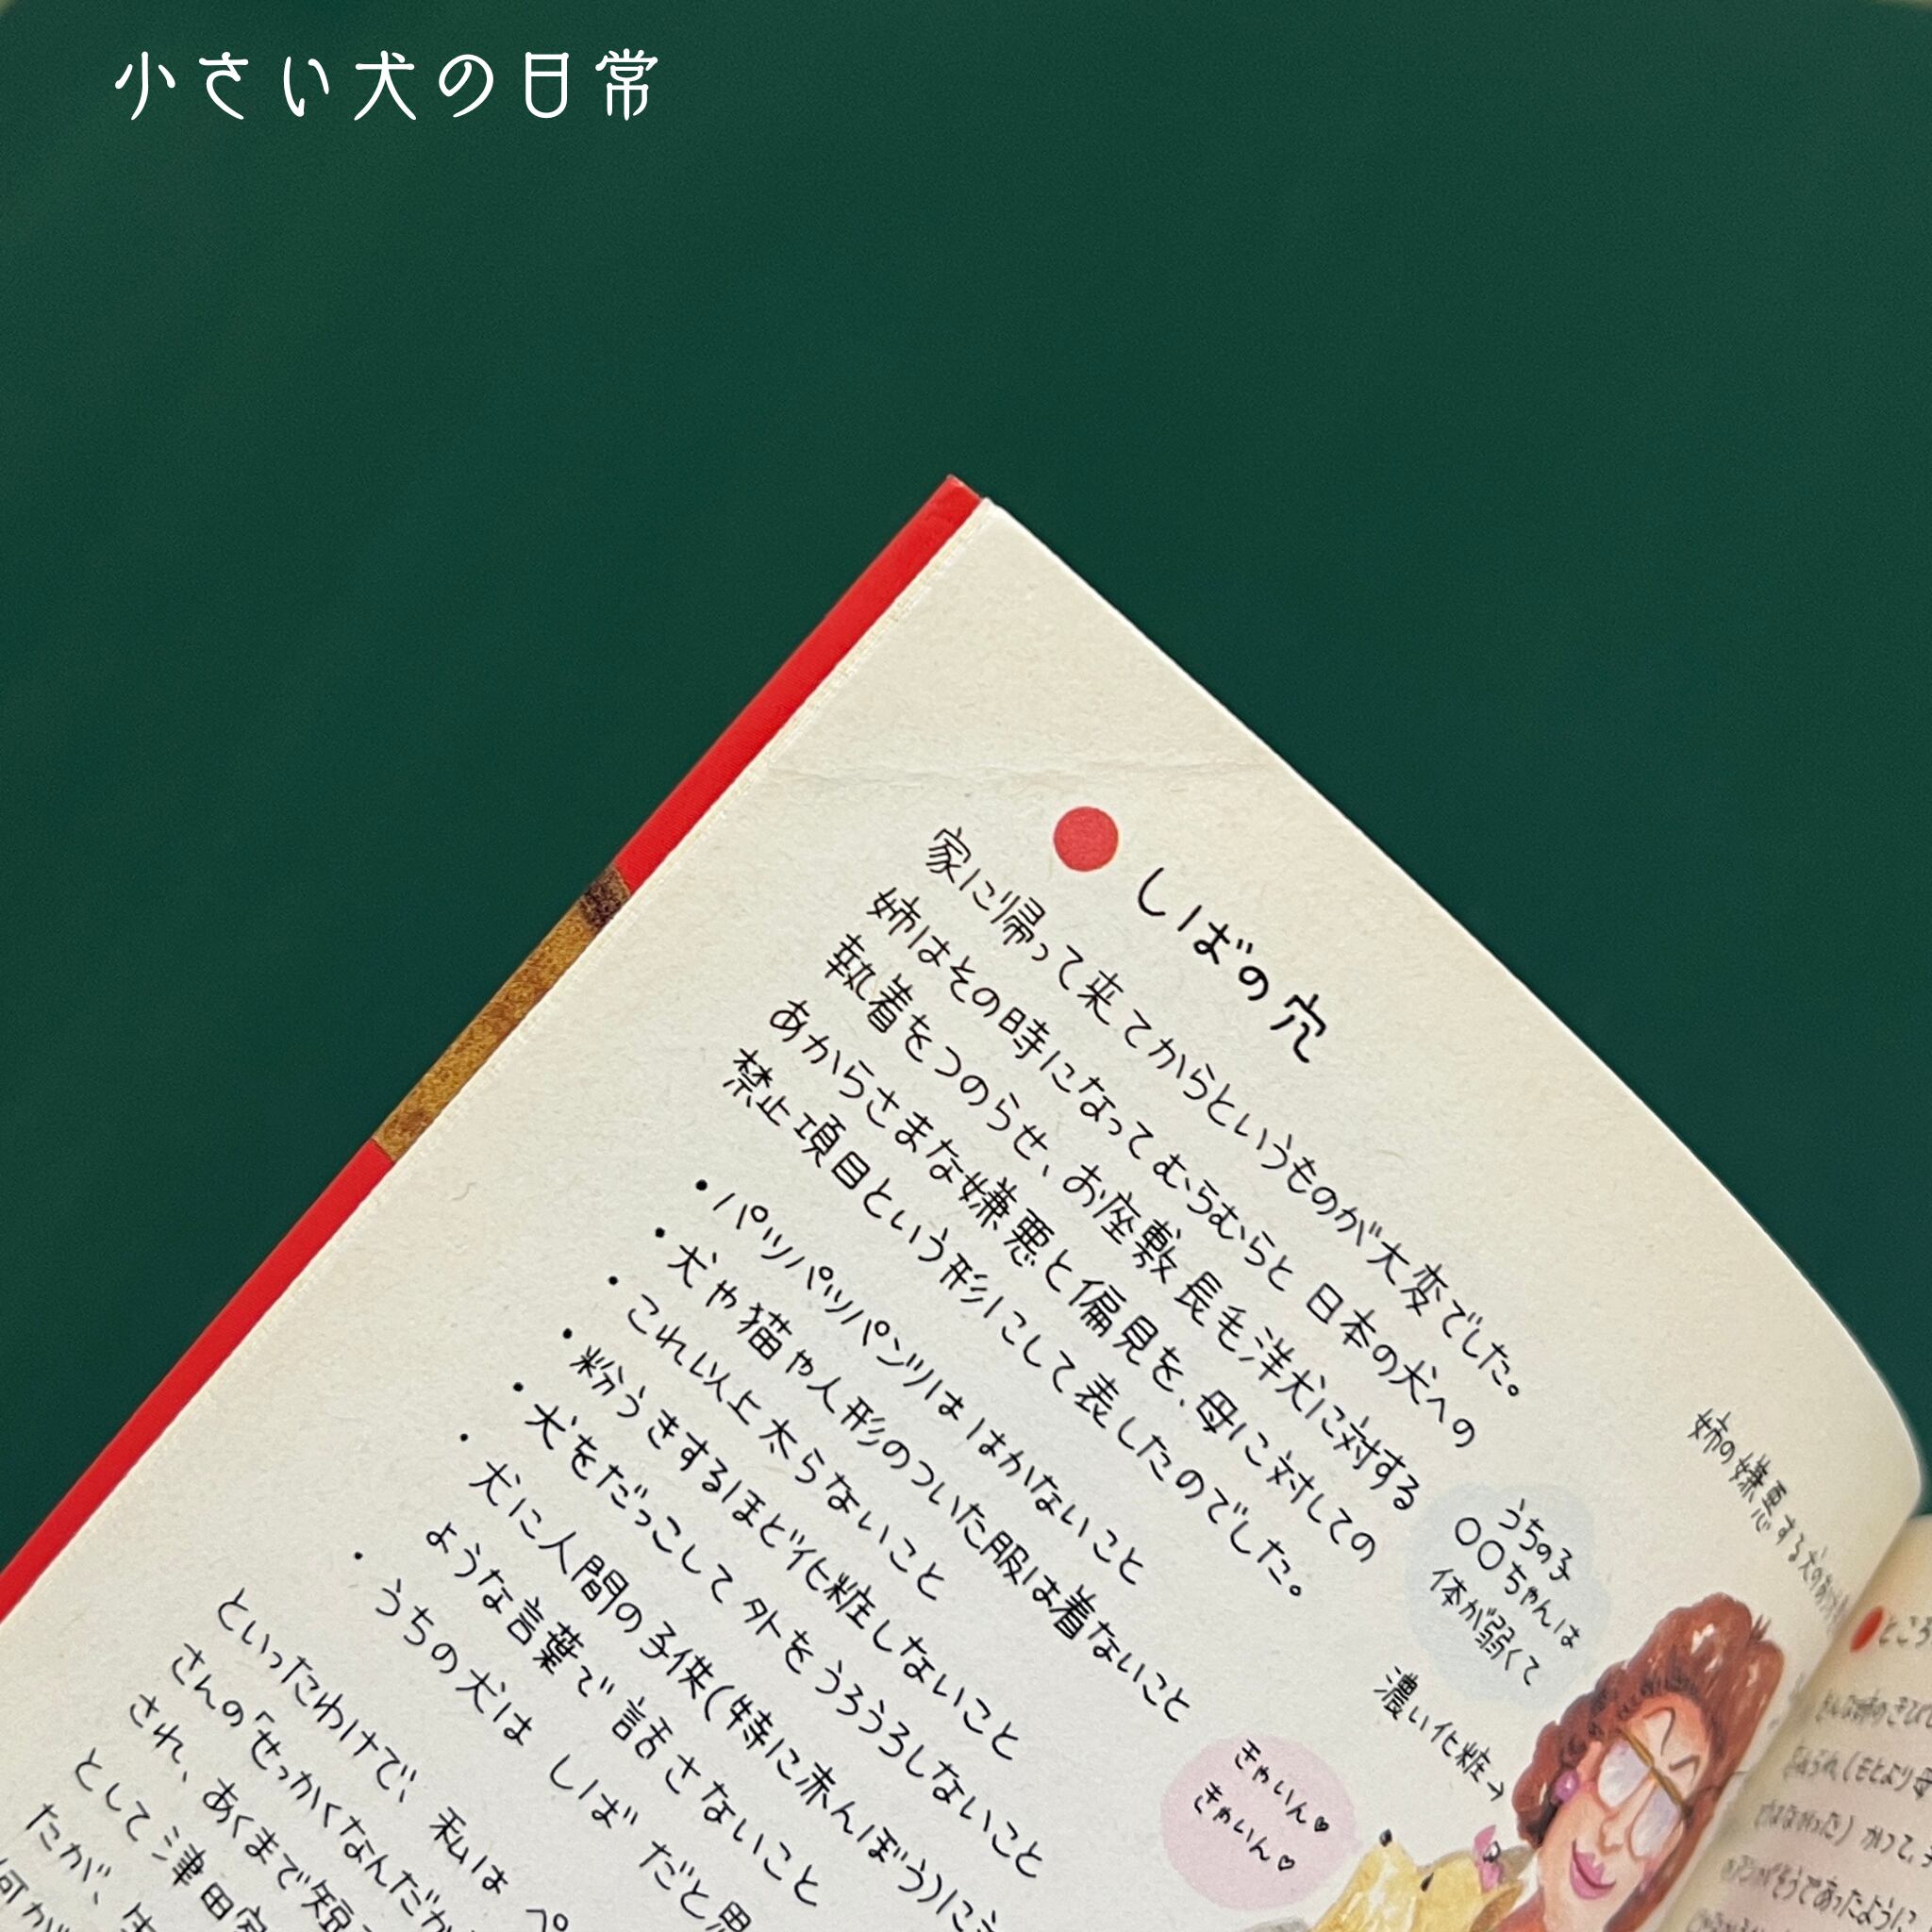 小さい犬の日常
しばの穴
家に帰って来てからというものが大変でした。
姉はその時になってむらむらと日本の犬への
執着をつのらせ、お座敷長毛洋犬に対する
あからさまな嫌悪と偏見を、母に対しての
禁止項目という形にして表したのでした。
・パツパツパンツははかないこと
・犬や猫や人形のついた服は着ないこと
・これ以上太らないこと
・粉うきするほど化粧しないこと
・犬をだっこして外をうろうろしないこと
・犬に人間の子供(特に赤んぼう)に
ような言葉で話さないこと
・うちの犬は しば だと思
といったわけで、私は ペ
さんの「せっかくなんだか
され、あくまで
として津田
たが、
何が
姉の嫌悪する犬の
うちの子
〇〇ちゃんは
体が弱くて
濃い化粧→
きゃいん♡
きゃいん♡
ところ